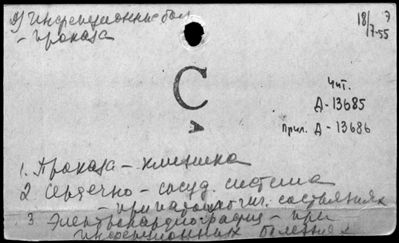 9) Инфекционные бол.
- проказа
18/7-55
Чит.
Д-13685
Прил. Д-13686
С
А
1. Проказа - клиника
2 Сердечно - сосуд. система
- при патологич. состояниях
3. Электрокардиография - при
инфекционных болезнях